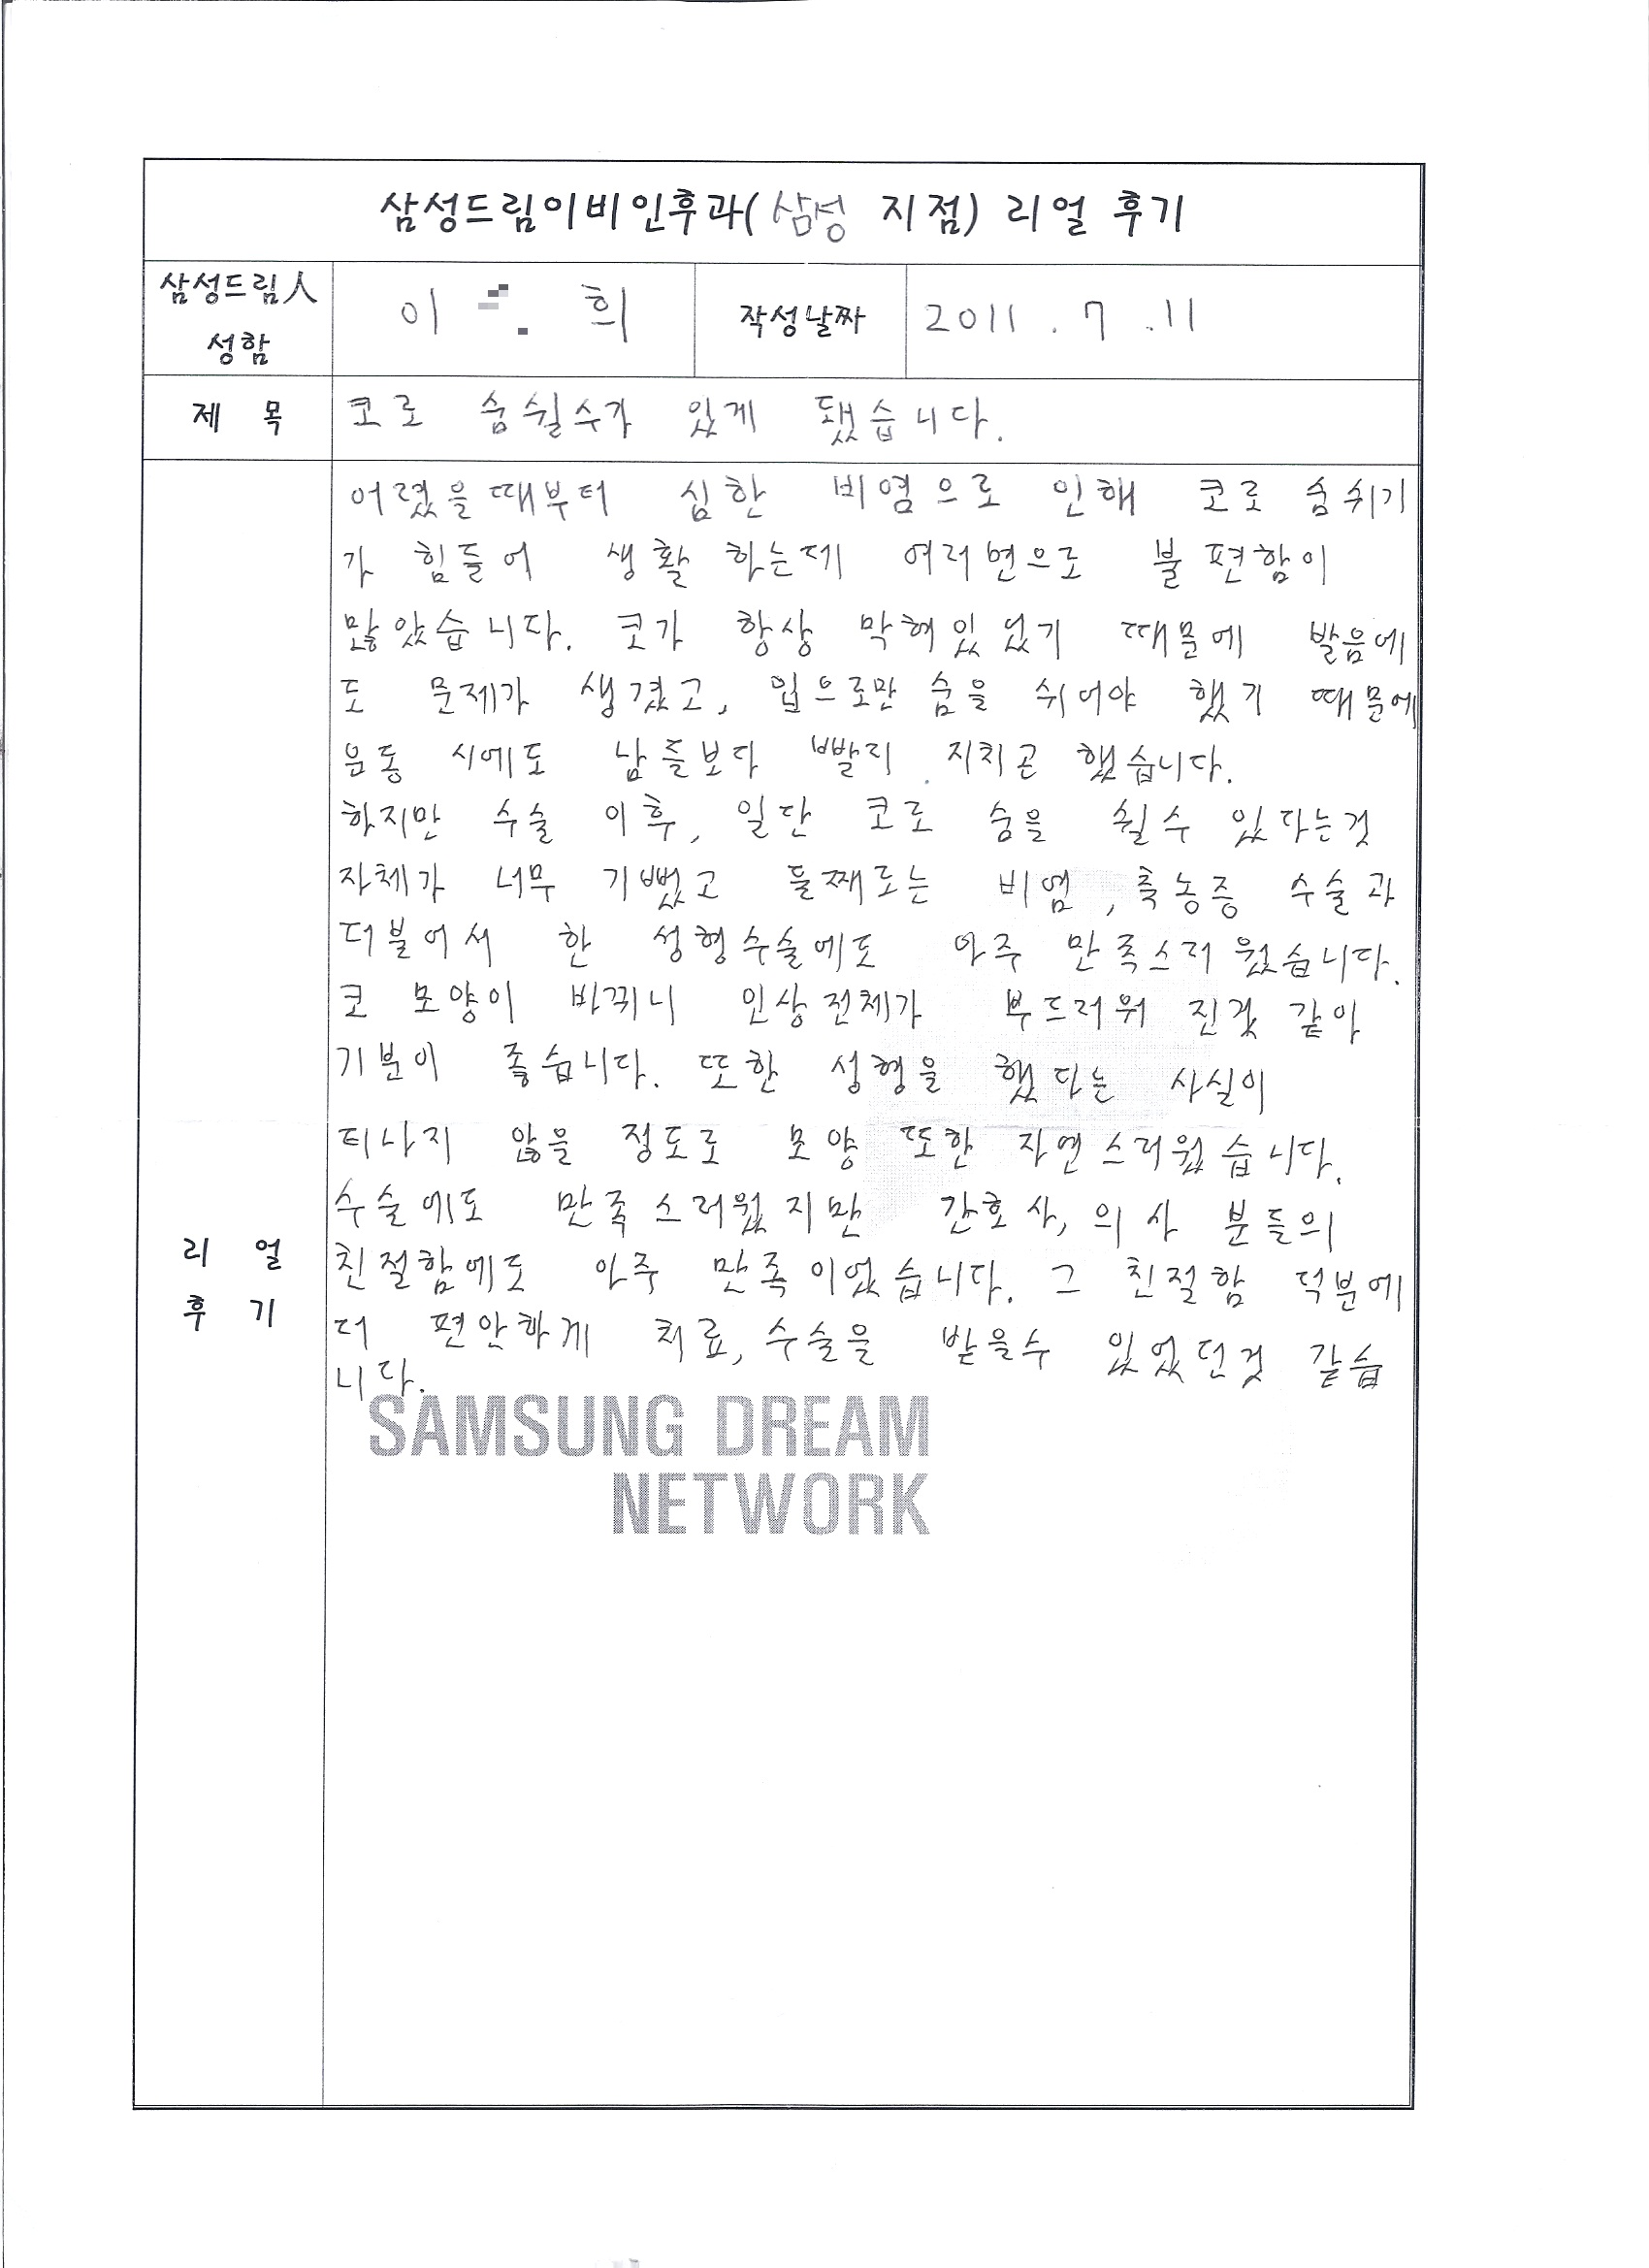 삼성드림이비인후과(삼성 지점) 리얼 후기
삼성드림人
성함
이 희
작성날짜
2011 . 7 . 11
제 목
코로 숨쉴수가 있게 됐습니다.
어렸을때부터 심한 비염으로 인해 코로 숨쉬기
가 힘들어 생활 하는데 여러면으로 불편함이
많았습니다. 코가 항상 막혀있었기 때문에 발음에
도 문제가 생겼고, 입으로만 숨을 쉬어야 했기 때문에
운동 시에도 남들보다 빨리 지치곤 했습니다.
하지만 수술 이후, 일단 코로 숨을 쉴수 있다는것
자체가 너무 기뻤고 둘째로는 비염, 축농증 수술과
더불어서 한 성형수술에도 아주 만족스러웠습니다.
코 모양이 바뀌니 인상전체가 부드러워 진것 같아
기분이 좋습니다. 또한 성형을 했다는 사실이
티나지 않을 정도로 모양 또한 자연스러웠습니다.
수술에도 만족스러웠지만 간호사, 의사 분들의
친절함에도 아주 만족이었습니다. 그 친절함 덕분에
더 편안하게 치료, 수술을 받을수 있었던것 같습
니다.
리 얼
후 기
SAMSUNG DREAM
NETWORK